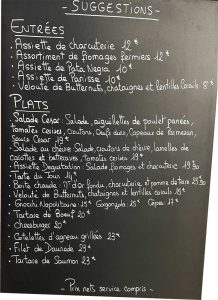 - SUGGESTIONS -
ENTRÉES
. Assiette de charcuterie 12 €
. Assortiment de fromages fermiers 12 €
. Assiette de Pata Negra 10 €
. Assiette de Panisse 10 €
. Velouté de Butternuts, chataignes et lentilles Corail 8 €
PLATS
. Salade Cesar : Salade, aiguillettes de poulet panées,
tomates cerises, croutons, Oeufs durs, Copeaux de Parmesan,
Sauce Cesar 19 €
. Salade au chèvre : Salade, croutons de chèvre, lamelles de
carottes et betteraves, Tomates cerises 19 €
. Assiette Degustation : Salade, fromages et charcuterie 19.90
. Tarte du Jour 14
. Boite chaude : Mt d'or fondu, charcuterie, et pomme de terre 25.90
. Velouté de Butternuts, chataignes et lentilles corails 15 €
. Gnocchi Napolitaine : 15 € Gorgonzola : 15 € Cèpes : 17 €
. Tartare de Boeuf 20 €
. Cheesburger 20 €
. Cotelettes d'agneau grillées 23 €
. Filet de Daurade 23 €
. Tartare de Saumon 23 €
- Prix nets service compris -